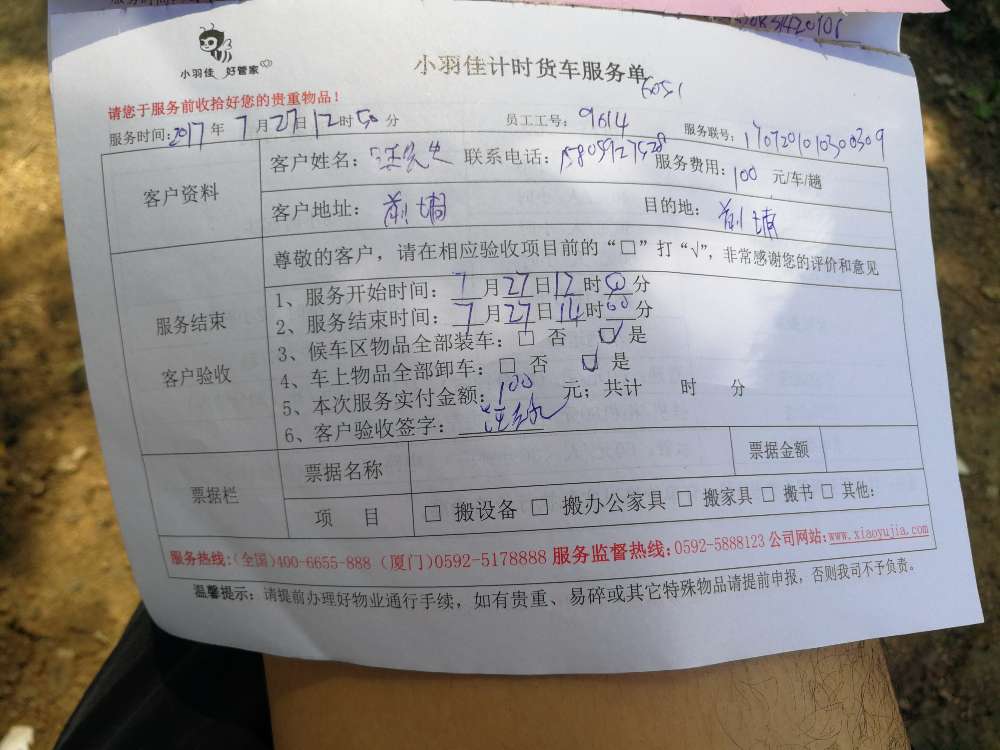 小羽佳 好管家
小羽佳计时货车服务单
6051
请您于服务前收拾好您的贵重物品！
服务时间：2017年7月27日12时50分 员工工号：9614 服务联号：1707201010300309
客户资料
客户姓名：汪先生 联系电话：15805927528 服务费用：100 元/车/趟
客户地址：前埔 目的地：前埔
服务结束
客户验收
尊敬的客户，请在相应验收项目前的“□”打“√”，非常感谢您的评价和意见
1、服务开始时间：7月27日12时50分
2、服务结束时间：7月27日14时00分
3、候车区物品全部装车：□ 否 ☑ 是
4、车上物品全部卸车：□ 否 ☑ 是
5、本次服务实付金额：100 元；共计 时 分
6、客户验收签字：
票据栏
票据名称 票据金额
项 目 □ 搬设备 □ 搬办公家具 □ 搬家具 □ 搬书 □ 其他：
服务热线：（全国）400-6655-888（厦门）0592-5178888 服务监督热线：0592-5888123 公司网站：www.xiaoyujia.com
温馨提示：请提前办理好物业通行手续，如有贵重、易碎或其它特殊物品请提前申报，否则我司不予负责。